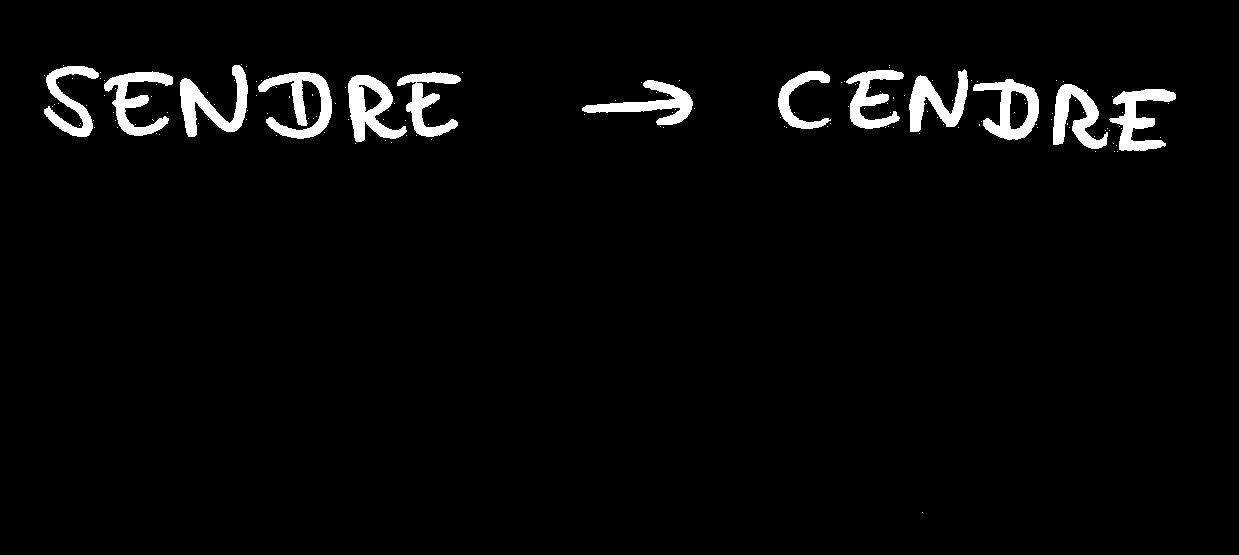 SENDRE → CENDRE